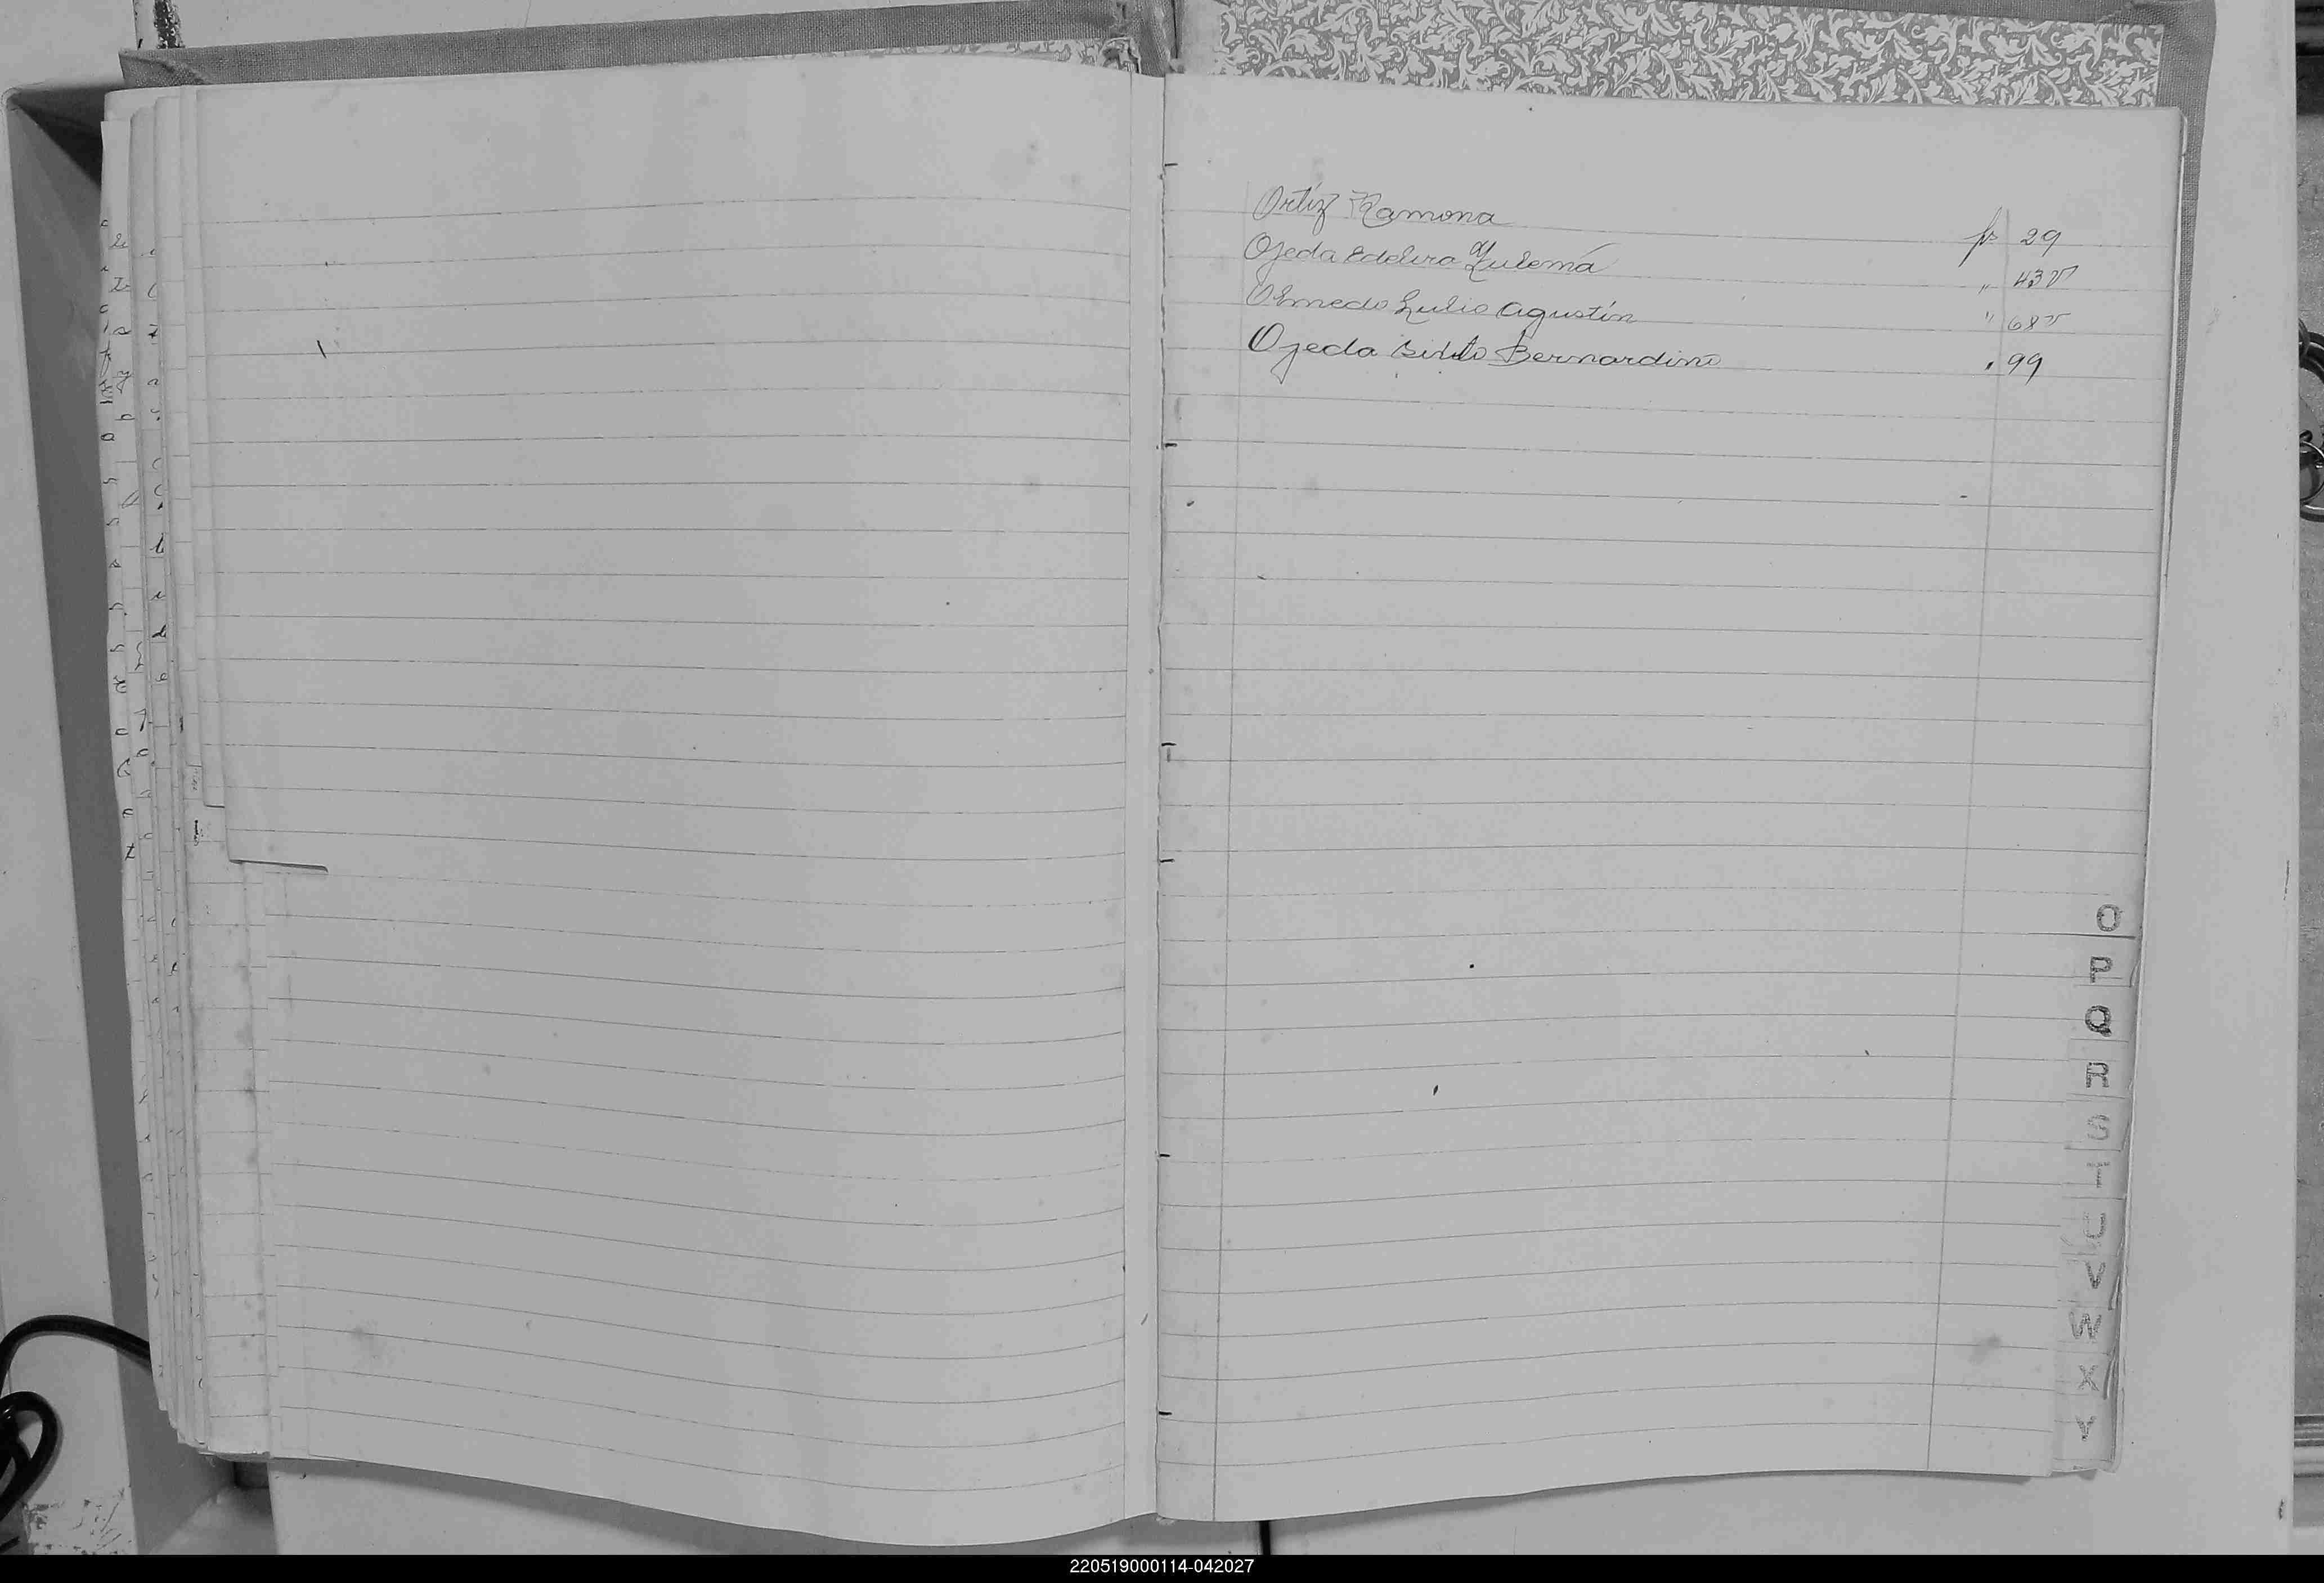 Ortiz Ramona fs 29
Ojeda Zulema " 43v
Olmedo Julio Agustín " 68v
Ojeda Bernardino " 99
O
P
Q
R
S
T
U
V
W
X
Y
220519000114-042027